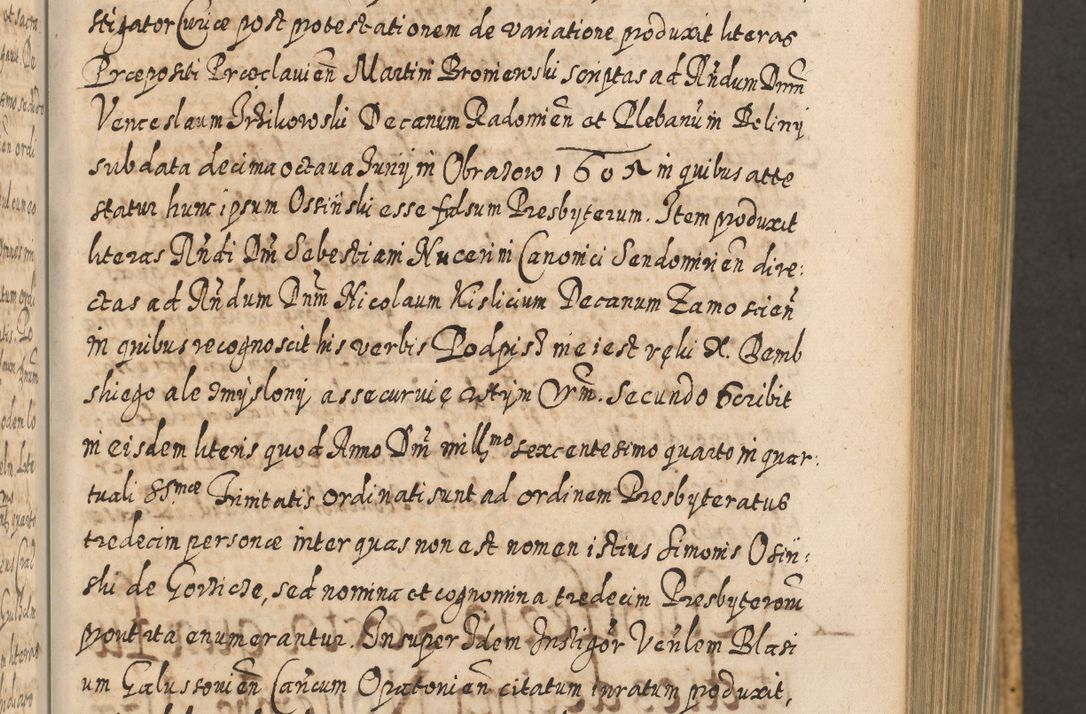 stigator Curiæ post protestationem de variatione produxit literas
Præpositi Præoclauien̄ Martini Broniewski scriptas ad Rn̄dum Dnm̄
Venceslaum Irzikowski Decanum Radomien̄ et Plebanum in Beliny
sub data decima octaua Junij in Obrazow 1605 in quibus atte
statur hunc ipsum Ossiński esse falsum Presbyterum. Item produxit
literas Rn̄di Dn̄i Sebestiani Nucerini Canonici Sendomirien̄ dire:
ctas ad Rn̄dum Dnm̄ Nicolaum Kislicium Decanum Zamoscien̄
in quibus recognoscit his verbis Podpis iest ręki X. Bemb
skiego ale zmyslony assecuruię Wm̄. Secundo scribit
in eisdem literis quod Anno Dn̄i mill̄mo sexcentesimo quarto in quar:
tuali SSmæ Trinitatis ordinati sunt ad ordinem Presbyteratus
tredecim personæ inter quas non est nomen istius Simonis Osiń:
ski de Gorzicze, sed nomina et cognomina tredecim Presbyterorū
prout ita enumerantur. Insuper Idem Instigōr Ven̄lem Blasi
um Galussowien̄ Can̄cum Opatouien̄ citatum iuratum produxit,